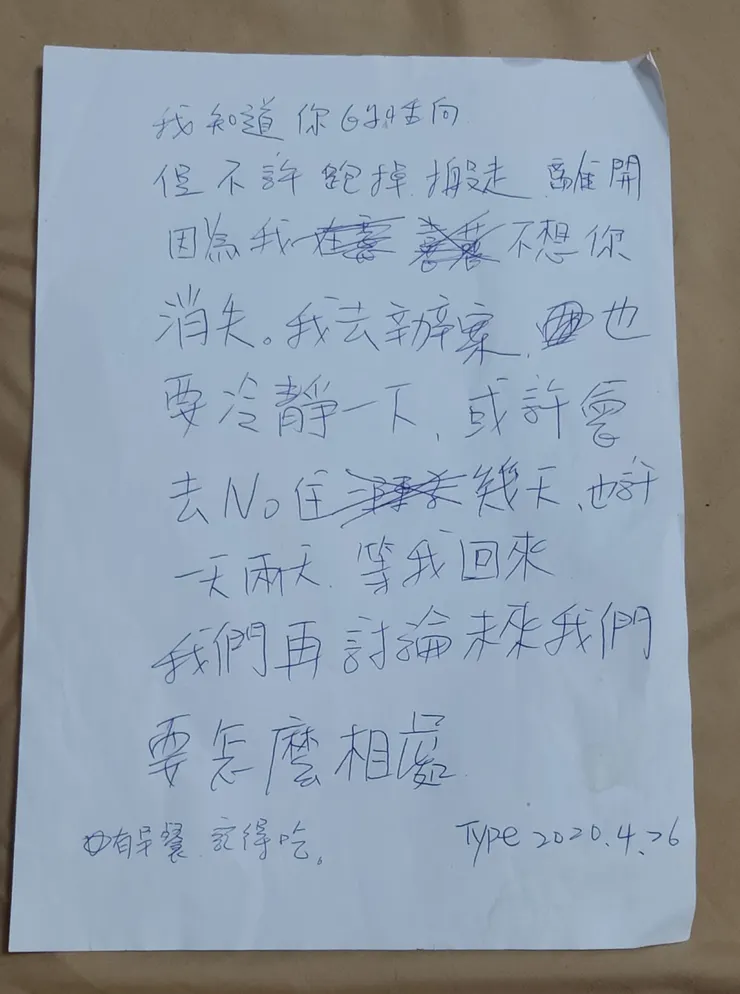 我知道你的性向
但不許跑掉、搬走、離開
因為我不想你
消失。我去辦案、也
要冷靜一下、或許會
去No住幾天、也許
一天兩天、等我回來
我們再討論未來我們
要怎麼相處
有早餐、記得吃。
Type 2020.4.26